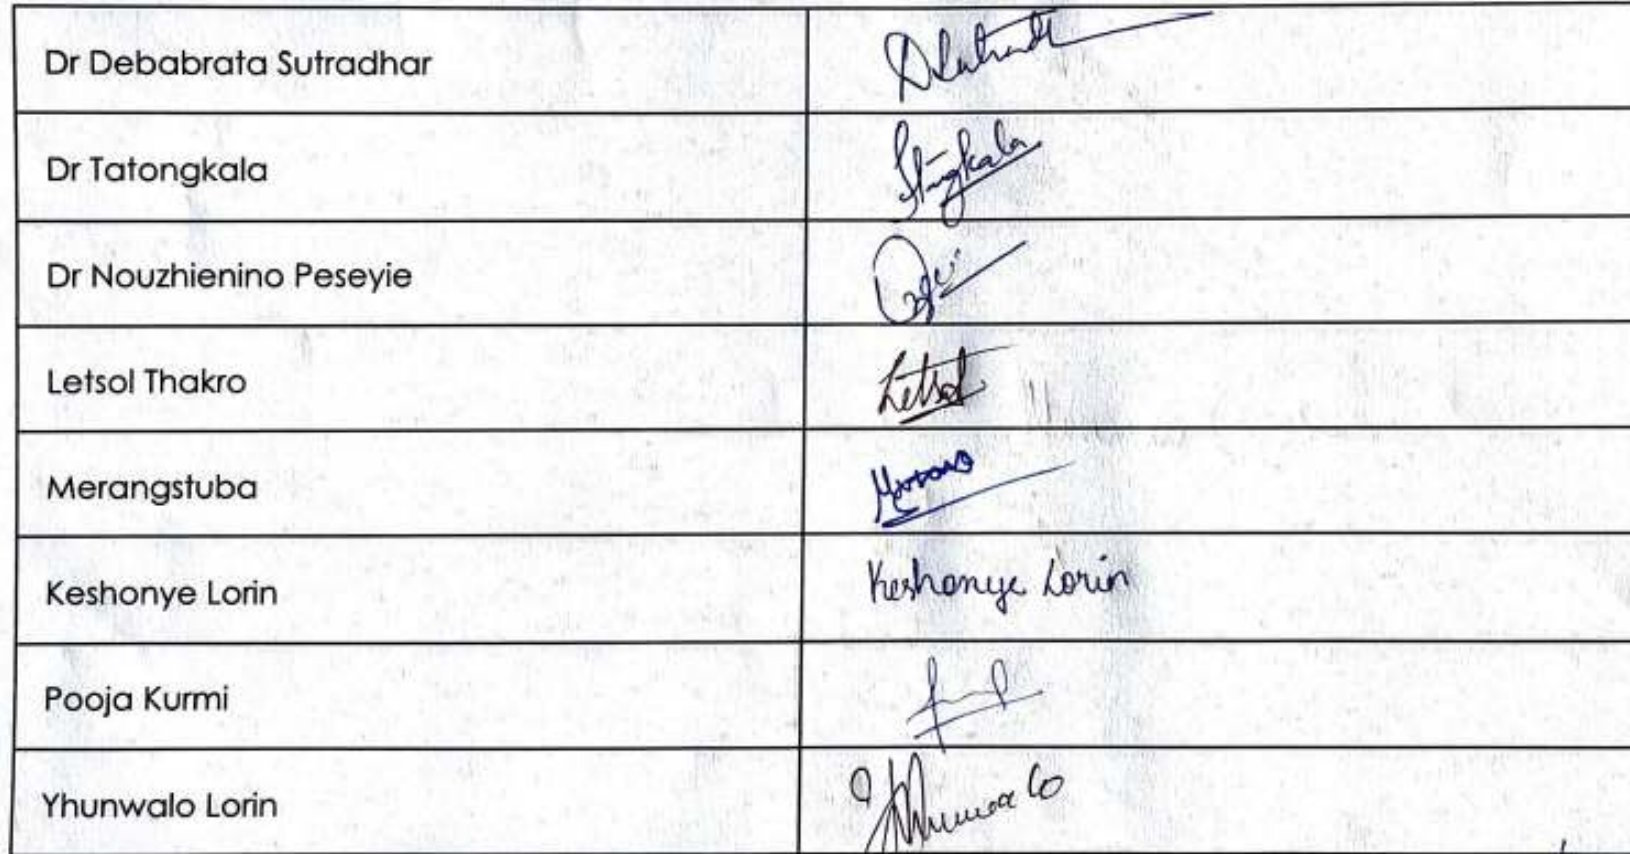 Dr Debabrata Sutradhar
Dr Tatongkala
Dr Nouzhienino Peseyie
Letsol Thakro Letsol
Merangstuba
Keshonye Lorin Keshonye Lorin
Pooja Kurmi
Yhunwalo Lorin Yhunwalo